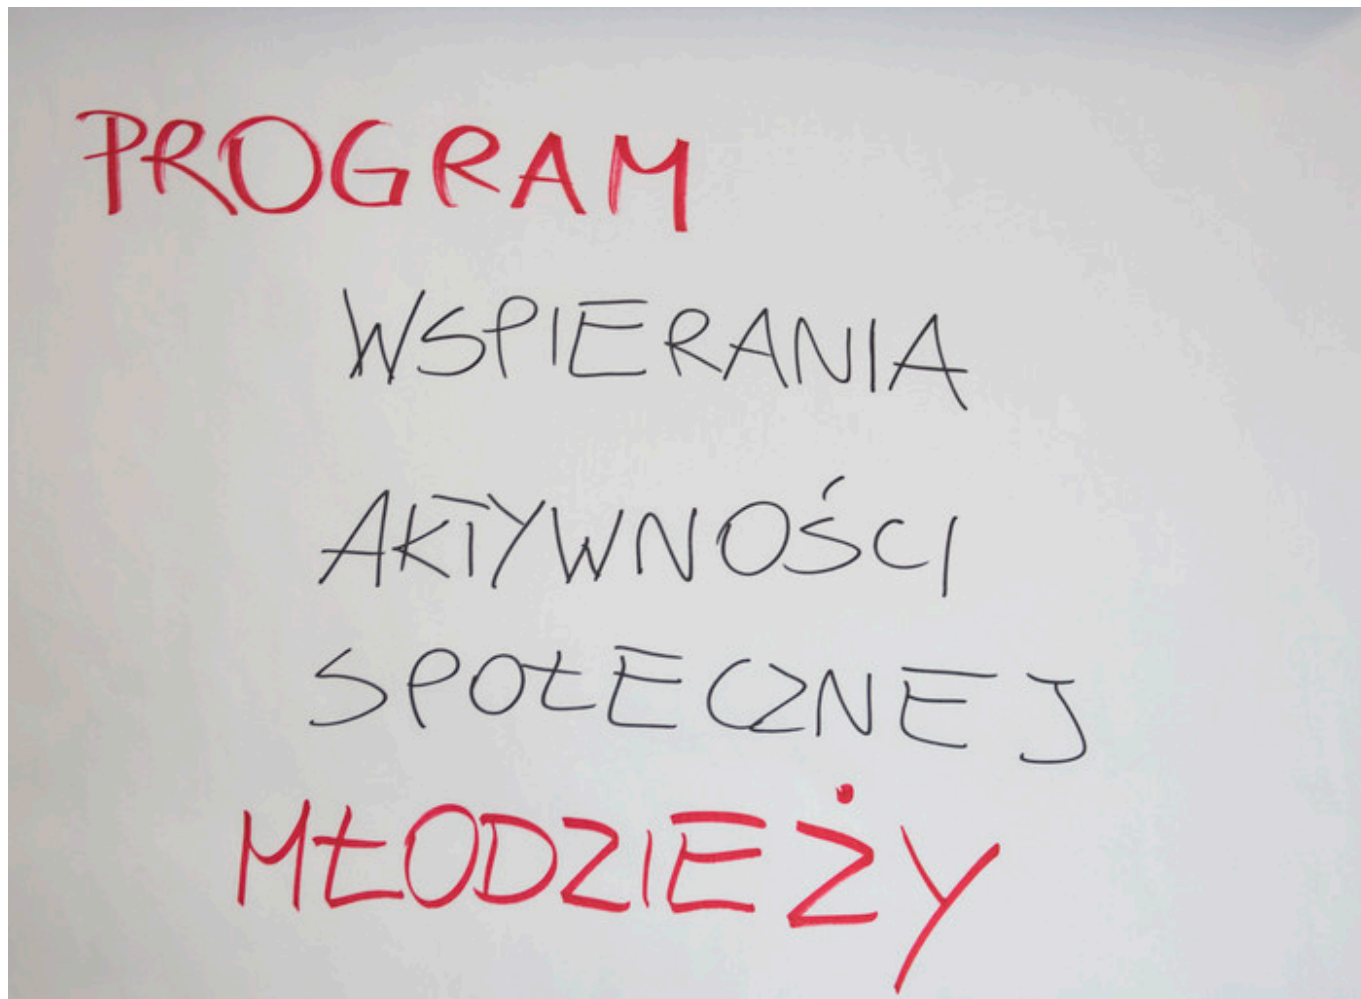 PROGRAM
WSPIERANIA
AKTYWNOŚCI
SPOŁECZNEJ
MŁODZIEŻY